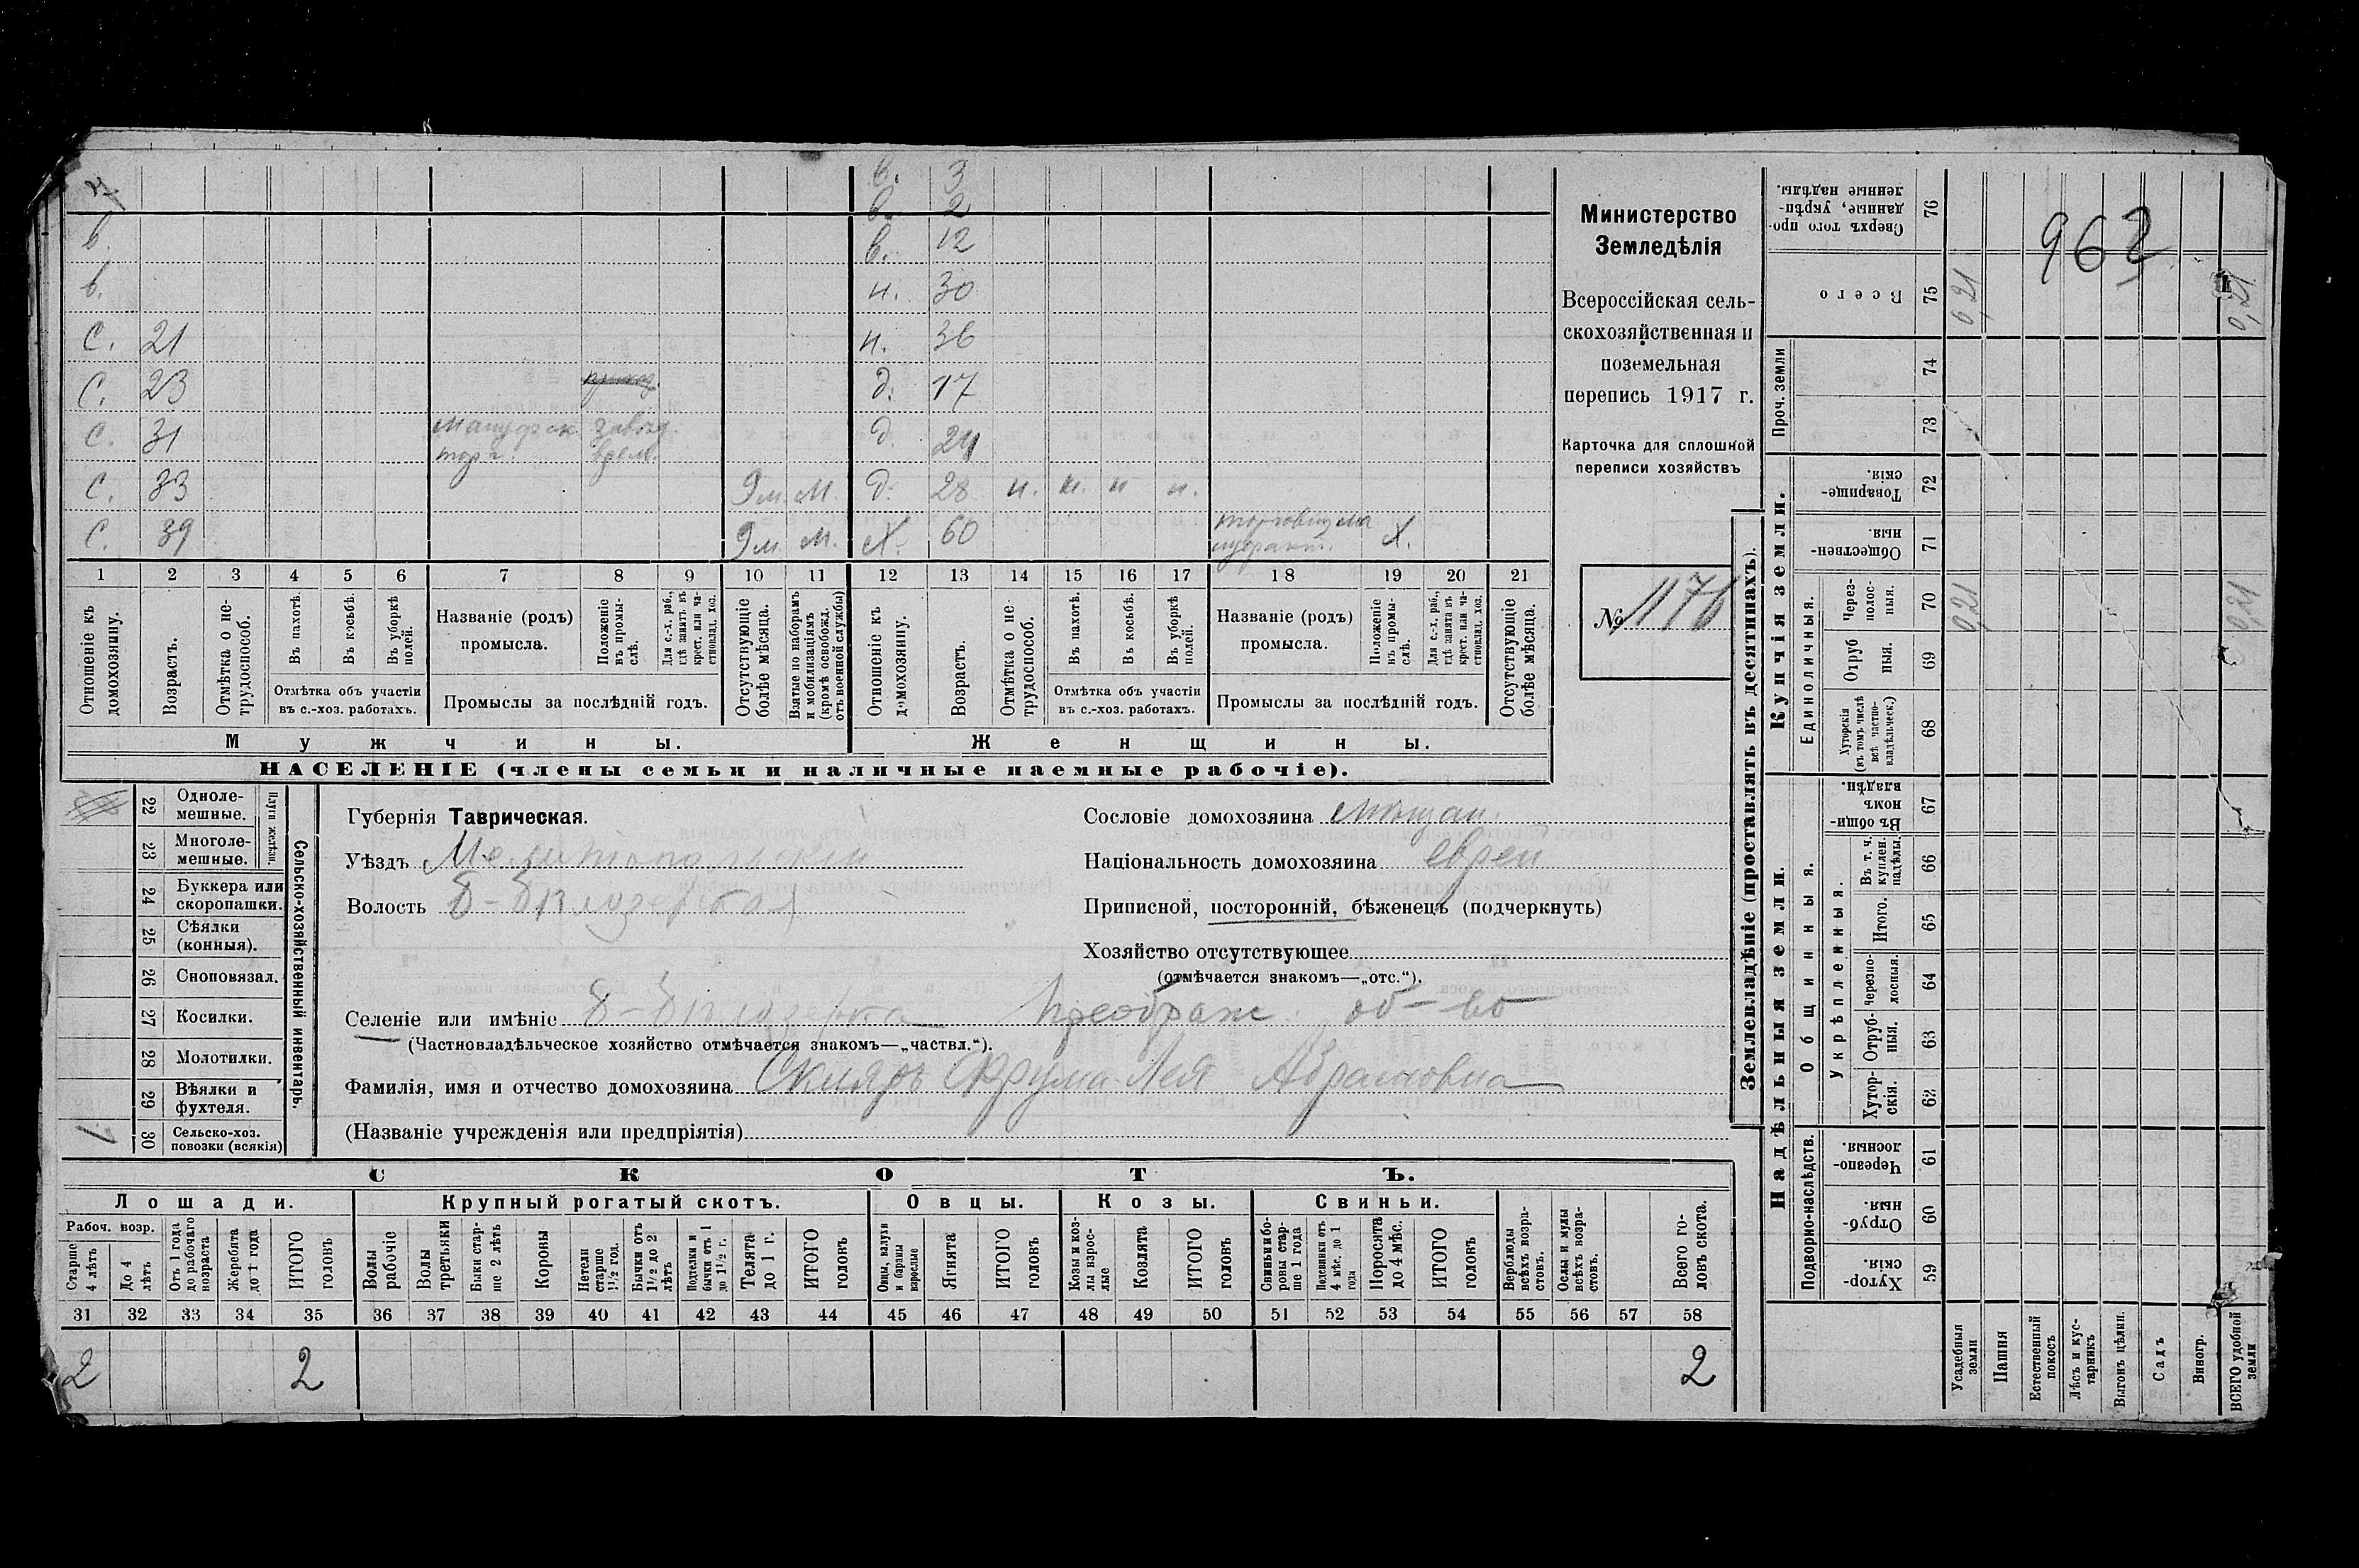 в. 3
в. 2
в. в. 12
в. н. 30
С. 21 н. 36
С. 23 д. 17
С. 31 Мануфак. торг. завѣд. врем. д. 24
С. 33 9 м. М. д. 28 н. н. н. н.
С. 39 9 м. М. Х. 60 торговцѣ Х.
1 2 3 4 5 6 7 8 9 10 11 12 13 14 15 16 17 18 19 20 21
Отношеніе къ домохозяину.
Возрастъ.
Отмѣтка о нетрудоспособ.
Въ пахотѣ.
Въ косьбѣ.
Въ уборкѣ полей.
Отмѣтка объ участіи въ с.-хоз. работахъ.
Названіе (родъ) промысла.
Положеніе въ промыслѣ.
Для с.-х. раб., гдѣ занятъ въ крест. или частновлад. хоз.
Промыслы за послѣдній годъ.
Отсутствующіе болѣе мѣсяца.
Взятые по наборамъ и мобилизаціямъ (кромѣ освобожд. отъ военной службы)
Отношеніе къ домохозяину.
Возрастъ.
Отмѣтка о нетрудоспособ.
Въ пахотѣ.
Въ косьбѣ.
Въ уборкѣ полей.
Отмѣтка объ участіи въ с.-хоз. работахъ.
Названіе (родъ) промысла.
Положеніе въ промыслѣ.
Для с.-х. раб., гдѣ занята въ крест. или частновлад. хоз.
Промыслы за послѣдній годъ.
Отсутствующіе болѣе мѣсяца.
Мужчины. Женщины.
НАСЕЛЕНІЕ (члены семьи и наличные наемные рабочіе).
Министерство
Земледѣлія
Всероссійская сель-
скохозяйственная и
поземельная
перепись 1917 г.
Карточка для сплошной
переписи хозяйствъ
№ 1176
22 Одноле-мешные.
23 Многоле-мешные.
Плуги желѣзн.
24 Буккера или скоропашки.
25 Сѣялки (конныя).
26 Сноповязал.
27 Косилки.
28 Молотилки.
29 Вѣялки и фухтеля.
30 Сельско-хоз. повозки (всякія) 1
Сельско-хозяйственный инвентарь.
Губернія Таврическая.
Уѣздъ Мелитопольскій
Волость Б-Бѣлозерская
Сословіе домохозяина мѣщан.
Національность домохозяина еврей
Приписной, посторонній, бѣженецъ (подчеркнуть)
Хозяйство отсутствующее
(отмѣчается знакомъ—„отс.“).
Селеніе или имѣніе Б-Бѣлозерка Преображ. об-во
(Частновладѣльческое хозяйство отмѣчается знакомъ—„частвл.“).
Фамилія, имя и отчество домохозяина Скляръ Фрума-Лея Абрамовна
(Названіе учрежденія или предпріятія)
СКОТЪ.
Лошади. Крупный рогатый скотъ. Овцы. Козы. Свиньи.
Рабоч. возр.
Старше 4 лѣтъ
До 4 лѣтъ
Отъ 1 года до рабочаго возраста
Жеребята до 1 года
ИТОГО головъ
Волы рабочіе
Волы третьяки
Быки старше 2 лѣтъ
Коровы
Нетели старше 1 1/2 год.
Бычки отъ 1 1/2 до 2 лѣтъ
Подтелки и бычки отъ 1 до 1 1/2 г.
Телята до 1 г.
ИТОГО головъ
Овцы, валухи и бараны взрослые
Ягнята
ИТОГО головъ
Козы и козлы взрослые
Козлята
ИТОГО головъ
Свиньи и боровы старше 1 года
Подсвинки отъ 4 мѣс. до 1 года
Поросята до 4 мѣс.
ИТОГО головъ
Верблюды всѣхъ возрастовъ.
Ослы и мулы всѣхъ возрастовъ.
Всего головъ скота.
31 32 33 34 35 36 37 38 39 40 41 42 43 44 45 46 47 48 49 50 51 52 53 54 55 56 57 58
2 2 2
Землевладѣніе (проставлять въ десятинахъ).
Надѣльныя земли. Купчія земли. Проч. земли
Подворно-наслѣдств.
Общинныя.
Укрѣпленныя.
Единоличныя.
Хуторскія. 59
Отрубныя. 60
Черезполосныя. 61
Хуторскія. 62
Отрубныя. 63
Черезполосныя. 64
Итого. 65
Въ т. ч. куплен. надѣлы. 66
Въ общинномъ владѣн. 67
Хуторскія (въ томъ числѣ всѣ частновладѣльческ.) 68
Отрубныя. 69
Черезполосныя. 70
Общественныя. 71
Товарищескія. 72
73
74
Всего 75
Сверхъ того проданные, укрѣпленные надѣлы. 76
962
0,21 0,21
0,21 0,21
Усадебныя земли
Пашня
Естественный покосъ
Лѣсъ и кустарникъ
Выгонъ цѣлин.
Садъ
Виногр.
ВСЕГО удобной земли